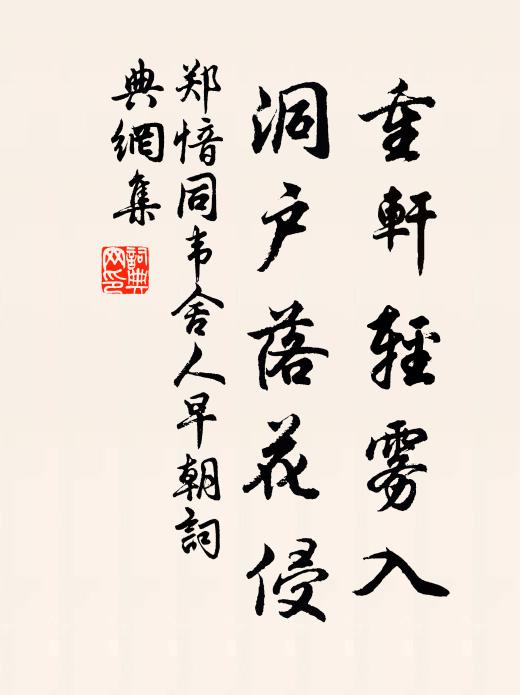 重軒輕雾入
洞户落花侵
郑愔同韦舍人早朝詞
典網集
詞典
网印